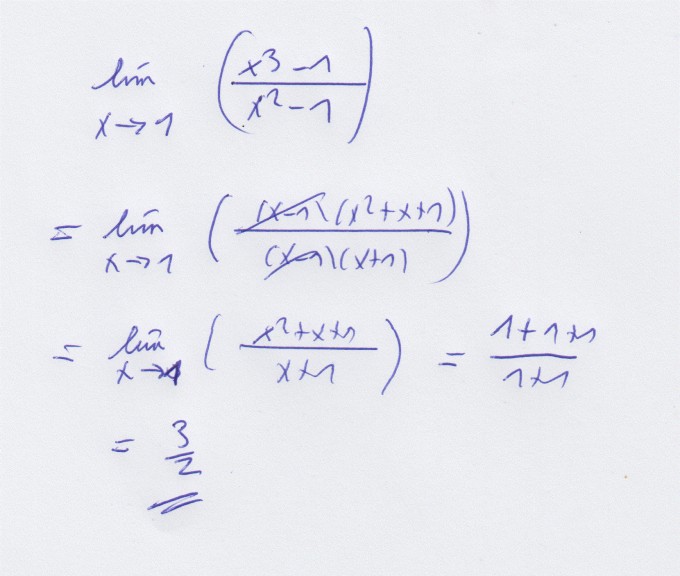 lim x→1 (x³-1 / x²-1)
= lim x→1 ((x-1)(x²+x+1) / (x-1)(x+1))
= lim x→1 (x²+x+1 / x+1) = 1+1+1 / 1+1
= 3/2